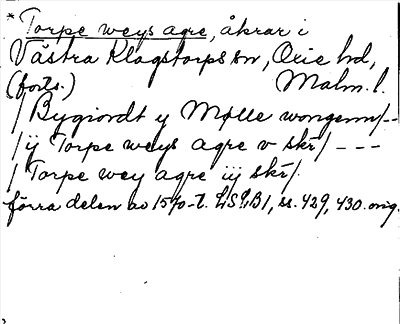 * Torpe weys agre, åkrar i
Västra Klagstorps sn, Oxie hd,
(forts.) Malm. l.
/ Bygiordt y Mølle wongenn/--
/ ij Torpe weys agre v skr̄/ ---
/ Torpe wey agre iij skr̄/.
förra delen av 1570-t. LSLB1, ss. 429, 430. orig.